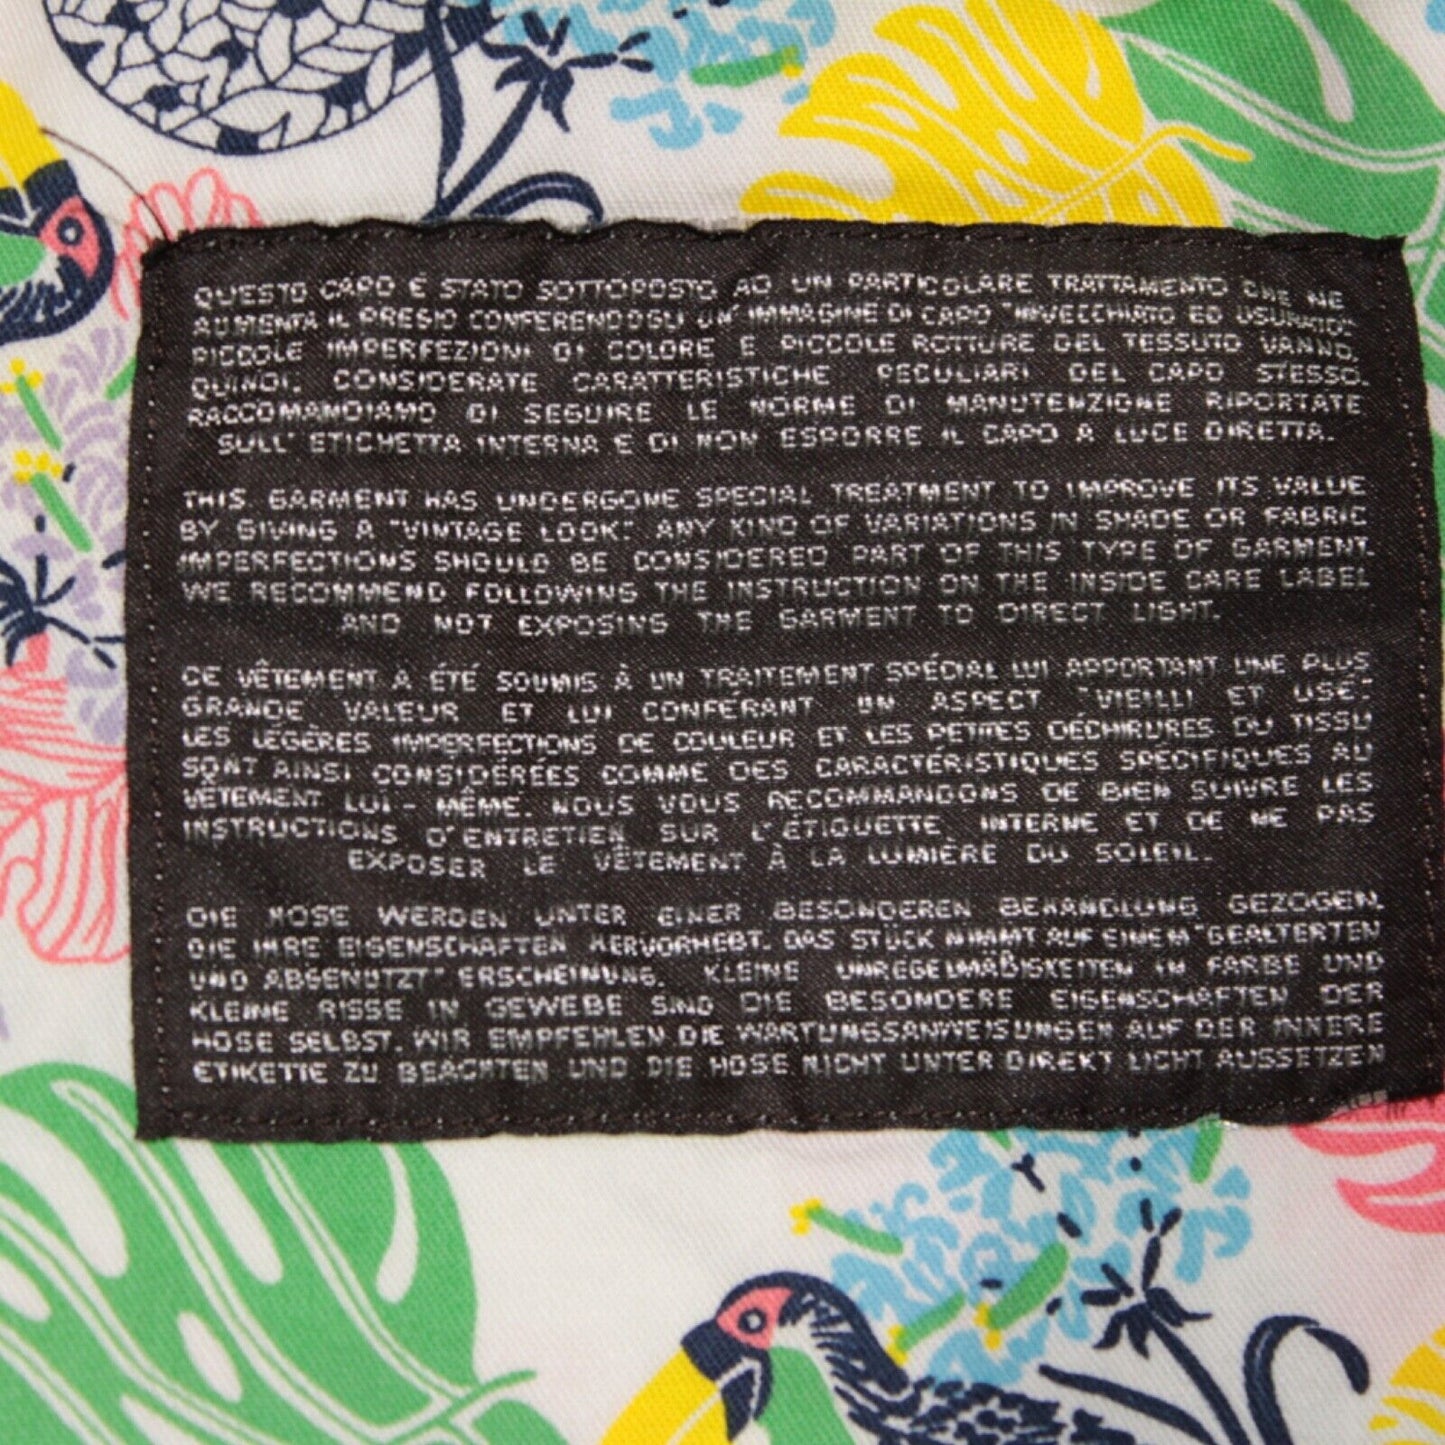 QUESTO CAPO È STATO SOTTOPOSTO AD UN PARTICOLARE TRATTAMENTO CHE NE
AUMENTA IL PREGIO CONFERENDOGLI UN'IMMAGINE DI CAPO "INVECCHIATO ED USURATO"
PICCOLE IMPERFEZIONI DI COLORE E PICCOLE ROTTURE DEL TESSUTO VANNO,
QUINDI, CONSIDERATE CARATTERISTICHE PECULIARI DEL CAPO STESSO.
RACCOMANDIAMO DI SEGUIRE LE NORME DI MANUTENZIONE RIPORTATE
SULL'ETICHETTA INTERNA E DI NON ESPORRE IL CAPO A LUCE DIRETTA.
THIS GARMENT HAS UNDERGONE SPECIAL TREATMENT TO IMPROVE ITS VALUE
BY GIVING A "VINTAGE LOOK". ANY KIND OF VARIATIONS IN SHADE OR FABRIC
IMPERFECTIONS SHOULD BE CONSIDERED PART OF THIS TYPE OF GARMENT.
WE RECOMMEND FOLLOWING THE INSTRUCTION ON THE INSIDE CARE LABEL
AND NOT EXPOSING THE GARMENT TO DIRECT LIGHT.
CE VÊTEMENT A ÉTÉ SOUMIS À UN TRAITEMENT SPÉCIAL LUI APPORTANT UNE PLUS
GRANDE VALEUR ET LUI CONFERANT UN ASPECT "VIEILLI ET USÉ".
LES LÉGÈRES IMPERFECTIONS DE COULEUR ET LES PETITES DÉCHIRURES DU TISSU
SONT AINSI CONSIDÉRÉES COMME DES CARACTÉRISTIQUES SPÉCIFIQUES AU
VÊTEMENT LUI-MÊME. NOUS VOUS RECOMMANDONS DE BIEN SUIVRE LES
INSTRUCTIONS D'ENTRETIEN SUR L'ÉTIQUETTE INTERNE ET DE NE PAS
EXPOSER LE VÊTEMENT À LA LUMIÈRE DU SOLEIL.
DIE HOSE WERDEN UNTER EINER BESONDEREN BEHANDLUNG GEZOGEN,
DIE IHRE EIGENSCHAFTEN HERVORHEBT. DAS STÜCK NIMMT AUF EINEM "GEALTERTEN
UND ABGENUTZT" ERSCHEINUNG. KLEINE UNREGELMÄßIGKEITEN IN FARBE UND
KLEINE RISSE IN GEWEBE SIND DIE BESONDERE EIGENSCHAFTEN DER
HOSE SELBST. WIR EMPFEHLEN DIE WARTUNGSANWEISUNGEN AUF DER INNERE
ETIKETTE ZU BEACHTEN UND DIE HOSE NICHT UNTER DIREKT LICHT AUSSETZEN